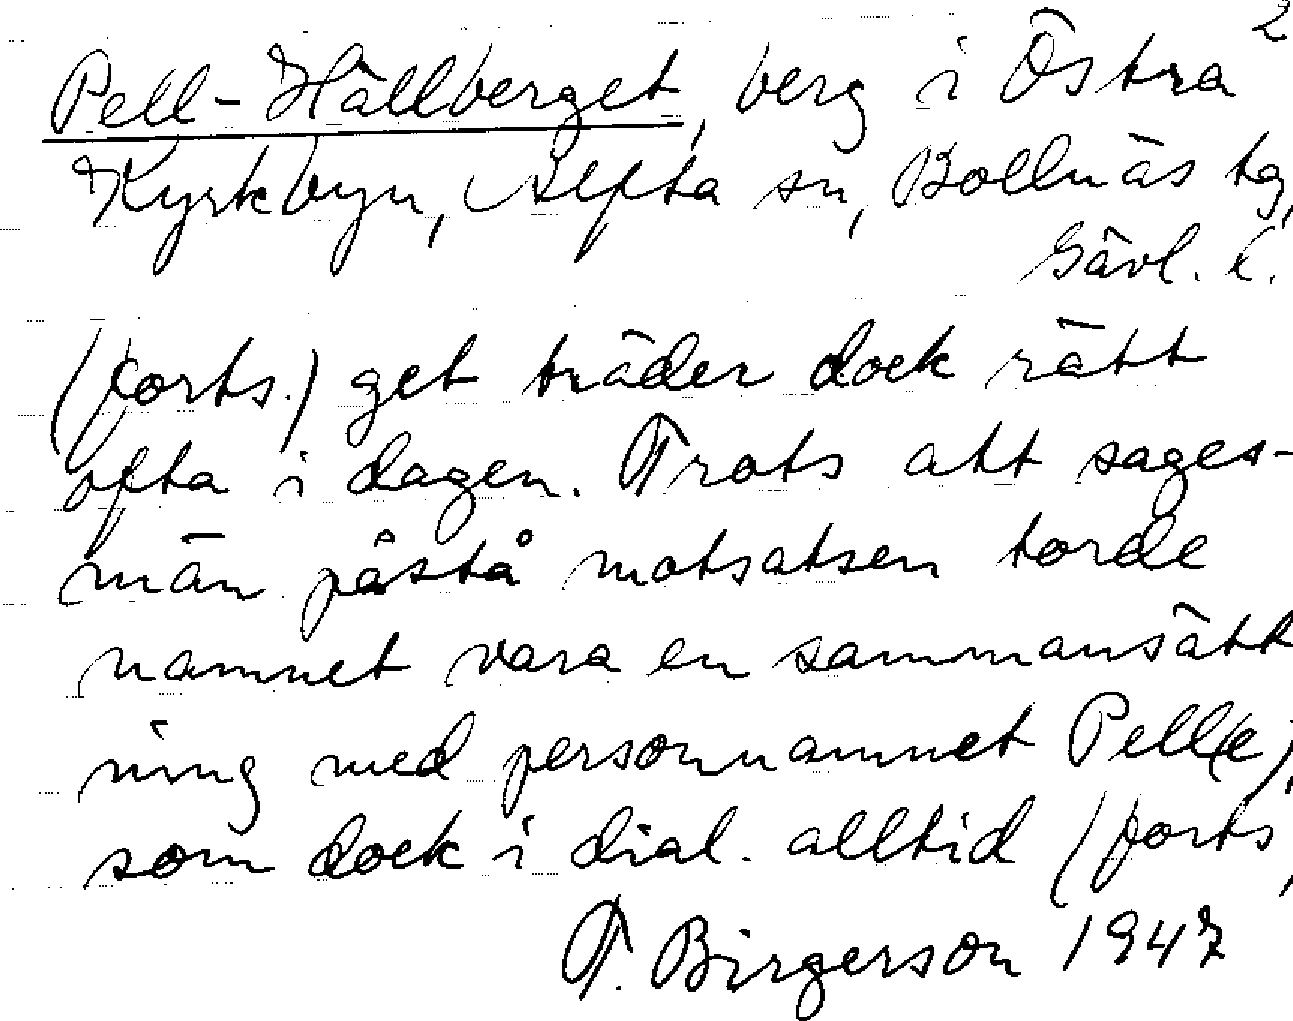 2
Pell-Hällberget, berg i Östra
Kyrkbyn, Alfta sn, Bollnäs tg,
Gävl. l.
(forts.) get träder dock rätt
ofta i dagen. Trots att sages-
män påstå motsatsen torde
namnet vara en sammansätt
ning med personnamnet Pell(e),
som dock i dial. alltid (forts,
T. Birgerson 1947